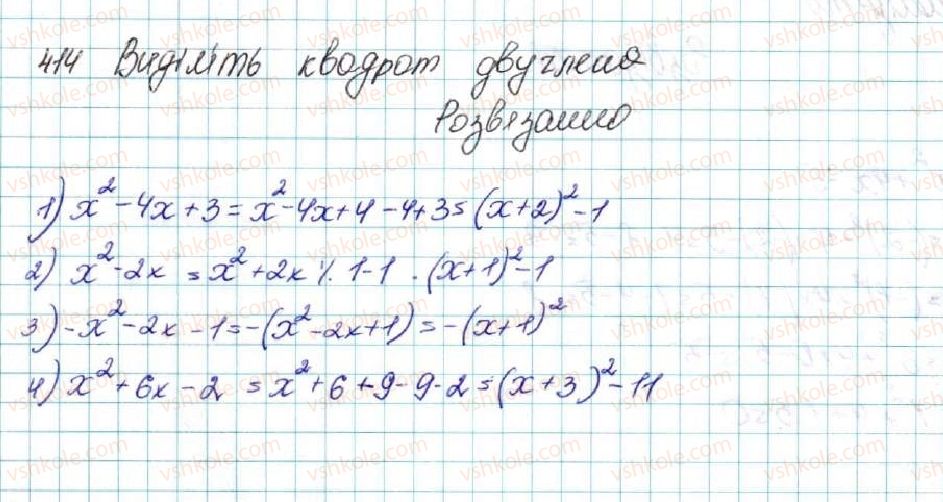 414 Виділіть квадрат двучлена
Розвязання
1) x² - 4x + 3 = x² - 4x + 4 - 4 + 3 = (x + 2)² - 1
2) x² - 2x = x² + 2x 1 - 1 . (x + 1)² - 1
3) -x² - 2x - 1 = -(x² - 2x + 1) = -(x + 1)²
4) x² + 6x - 2 = x² + 6 + 9 - 9 - 2 = (x + 3)² - 11